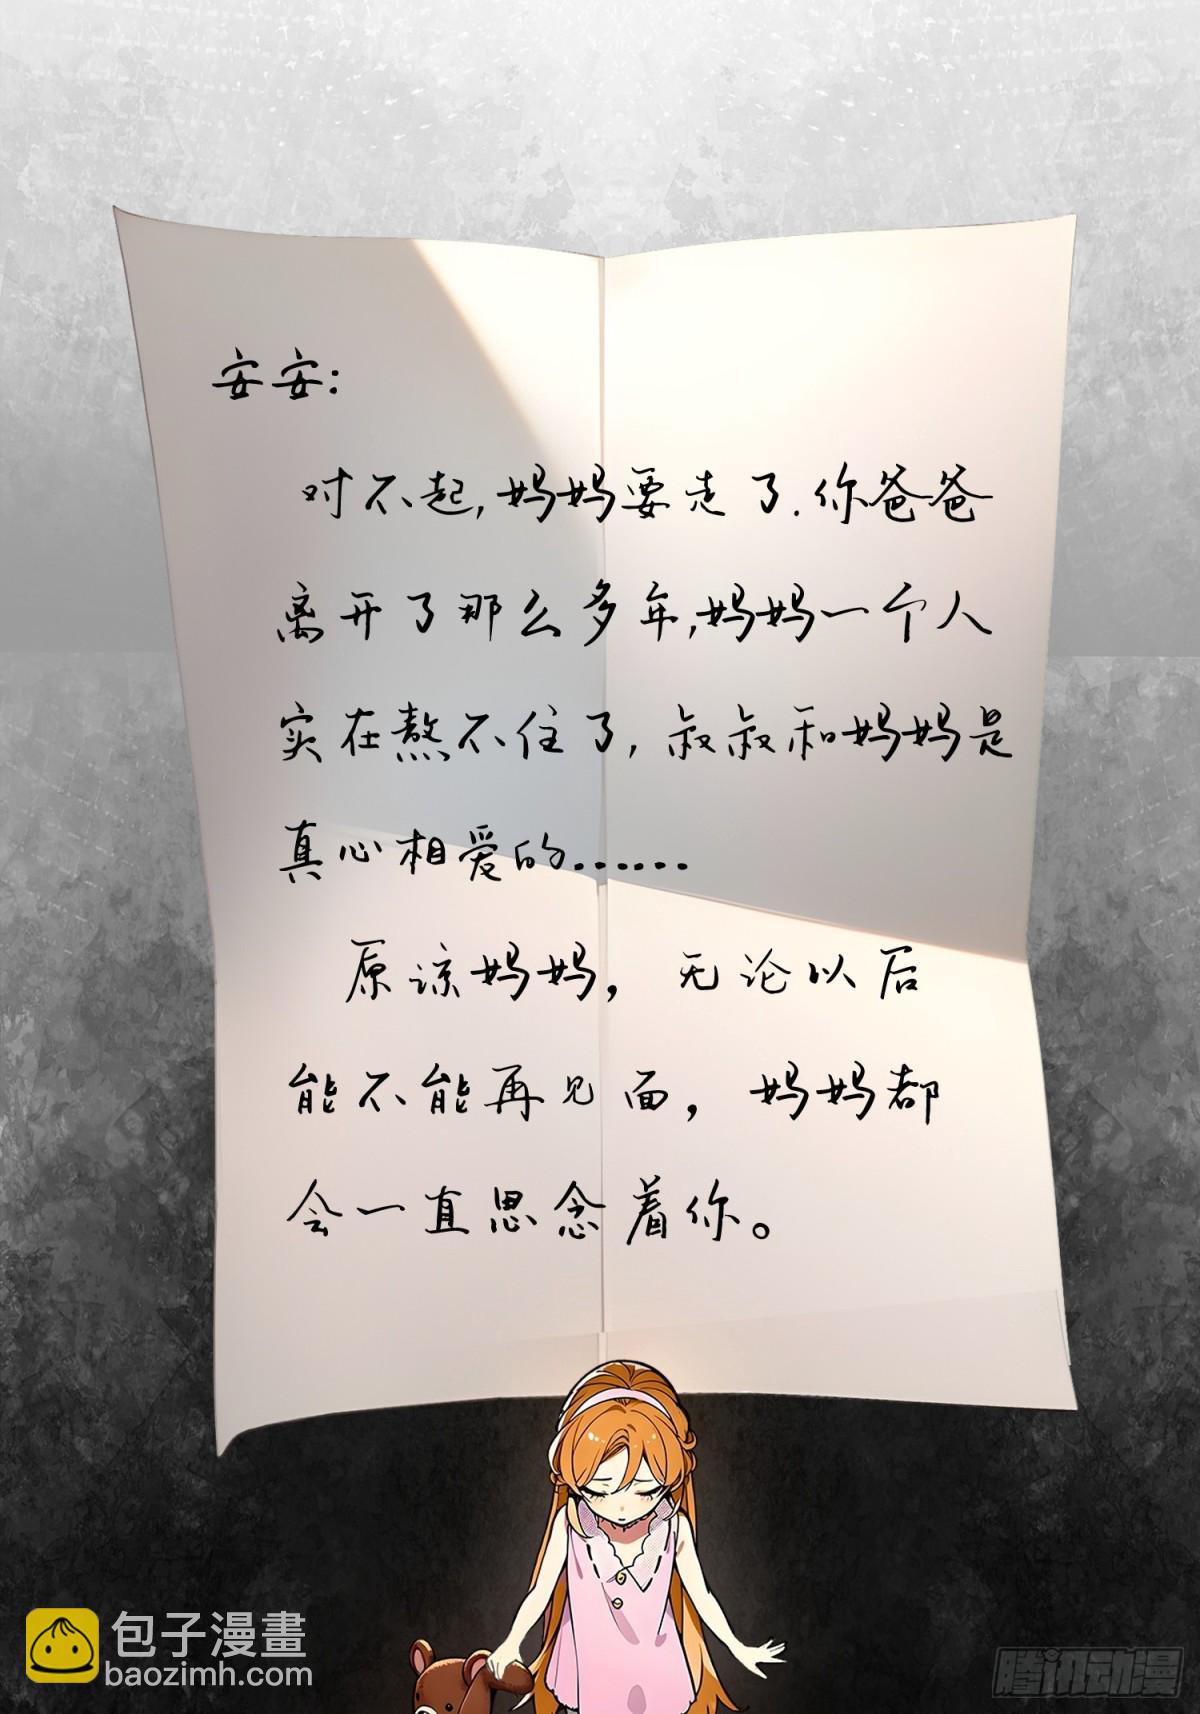 安安：
对不起，妈妈要走了.你爸爸
离开了那么多年，妈妈一个人
实在熬不住了，叔叔和妈妈是
真心相爱的……
原谅妈妈，无论以后
能不能再见面，妈妈都
会一直思念着你。
包子漫畫
baozimh.com
腾讯动漫